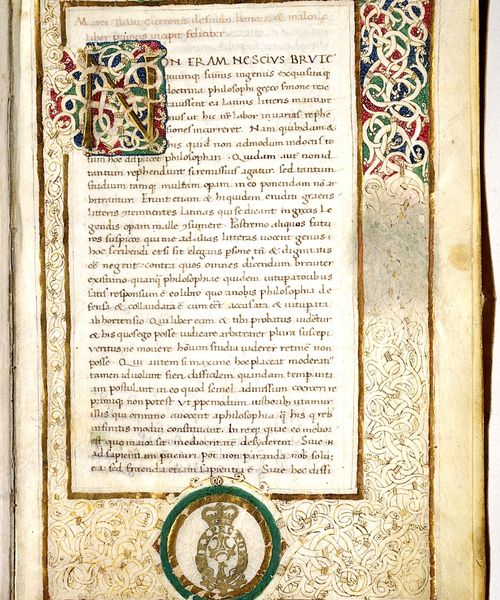 Marci Tullii Ciceronis de finibus bonor & malor
liber primus incipit feliciter
NON ERAM NESCIVS BRVTE
quum que sumis ingeniis exquisitaq
doctrina philosophi greco sermone tra
ctauissent ea latinis litteris mandare
mus ut hic nr labor in uarias rephe
siones incurreret. Nam quibusdam &
his quid non admodum indoctis to
tum hoc displicet philosophari. Quidam aut non id
tantum rephendunt si remissius agatur. sed tantum
studium tamq multam opam in eo ponendam no ar
bitrantur. Erunt etiam & hi quidem eruditi grecis
litteris contemnentes latinas qui se dicant in grecis le
gendis opam malle consumere. Postremo aliquos futu
ros suspicor qui me ad alias litteras uocent genus
hoc scribendi etsi sit elegans psone tam & dignitatis
ee negent. contra quos omnes dicendum breuiter
existimo. quanq philosophiae quidem uituperatoribus
satis responsum e eo libro quo a nobis philosophia de
fensa & collaudata e cum eet accusata & uitupata
ab hortensio. Qui liber cum & tibi probatus uideret
& his quos ego posse iudicare arbitrarer plura suscepi
ueritus ne mouere hominum studia uiderer retinere non
posse. Qui autem si maxime hoc placeat moderati
tamen id uolunt fieri. difficilem quandam tempantia
am postulant in eo quod semel admissum coerceri re
primiq non potest. Vt ppemodum iustioribus utamur
illis qui omnino auocent a philosophia q his q reb
infinitis modum constituant. In req eo meliore
quo maior sit mediocritatem desyderent. Siue
ad sapientiam pueniri pot non paranda nob solu
ea sed fruenda etiam sapientia e. Siue hoc diffi